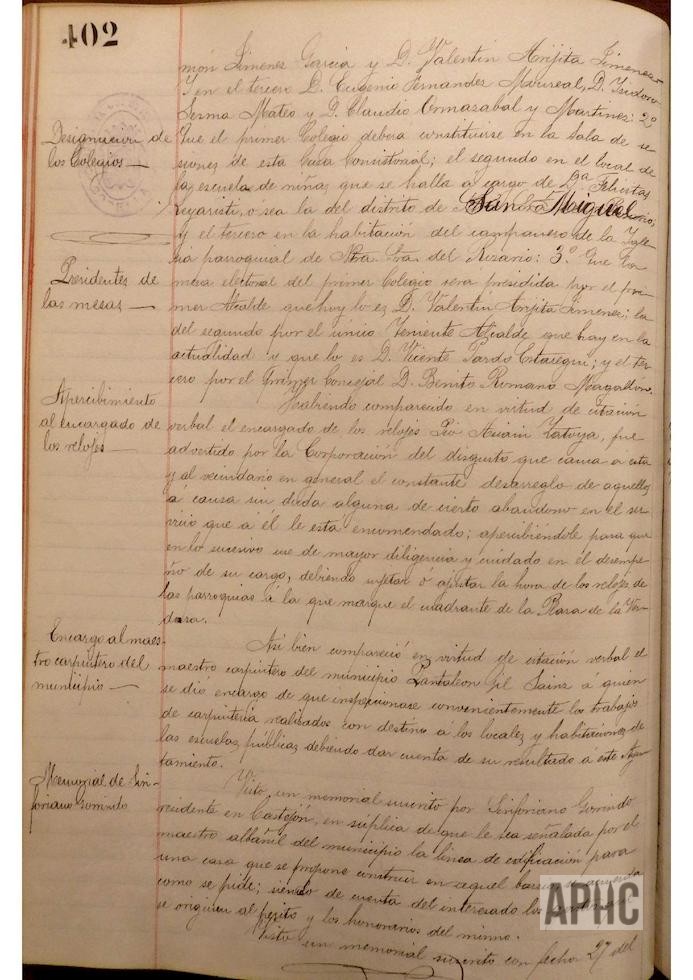 402
Designación de
los Colegios —
Presidentes de
las mesas —
Apercibimiento
al encargado de
los relojes —
Encargo al maes-
tro carpintero del
municipio —
Memorial de Sin-
foriano Gorrindo
món Jimenez García y D. Valentin Arijita Jimenez
Y en el tercero D. Eugenio Fernandez Moureal, D. Isidoro
Serma Mateo y D. Claudio Ormasabal y Martinez: 2º
Que el primer Colegio debera constituirse en la Sala de se
siones de esta Casa Consistorial; el segundo en el local de
la escuela de niñas que se halla a cargo de Dª Felicitas
o sea la del distrito de San Miguel
y el tercero en la habitación del campanero de la Igle
sia parroquial de Ntra. Sra. del Rosario: 3º Que la
mesa electoral del primer Colegio sera presidida por el pri-
mer Alcalde que hoy lo es D. Valentin Arijita Jimenez; la
del segundo por el unico Teniente Alcalde que hay en la
actualidad y que lo es D. Vicente Pardo; y el ter-
cero por el primer Concejal D. Benito Romano Magallon.
Habiendo comparecido en virtud de citacion
verbal el encargado de los relojes Pio Zatoya, fue
advertido por la Corporación del disgusto que causa a esta
y al vecindario en general el constante desarreglo de aquellos
á causa sin duda alguna de cierto abandono en el ser
vicio que á él le está encomendado; apercibiéndole para que
en lo sucesivo use de mayor diligencia y cuidado en el desempe-
ño de su cargo, debiendo sujetar ó ajustar la hora de los relojes de
las parroquias á la que marque el cuadrante de la Plaza de la Ver
dura.
Asi bien compareció en virtud de citación verbal el
maestro carpintero del municipio Pantaleon Gil Sainz á quien
se dió encargo de que inspeccionase convenientemente los trabajos
de carpinteria realizados con destino á los locales y habitaciones de
las escuelas públicas debiendo dar cuenta de su resultado á este Ayun
tamiento.
Visto un memorial suscrito por Sinforiano Gorrindo
residente en Castejón, en súplica de que le sea señalada por el
maestro albañil del municipio la linea de edificación para
una casa que se propone construir en aquel barrio se acuerda
como se pide; siendo de cuenta del interesado los
se originen al perito y los honorarios del mismo.
Visto un memorial suscrito con fecha 27 del
APHC